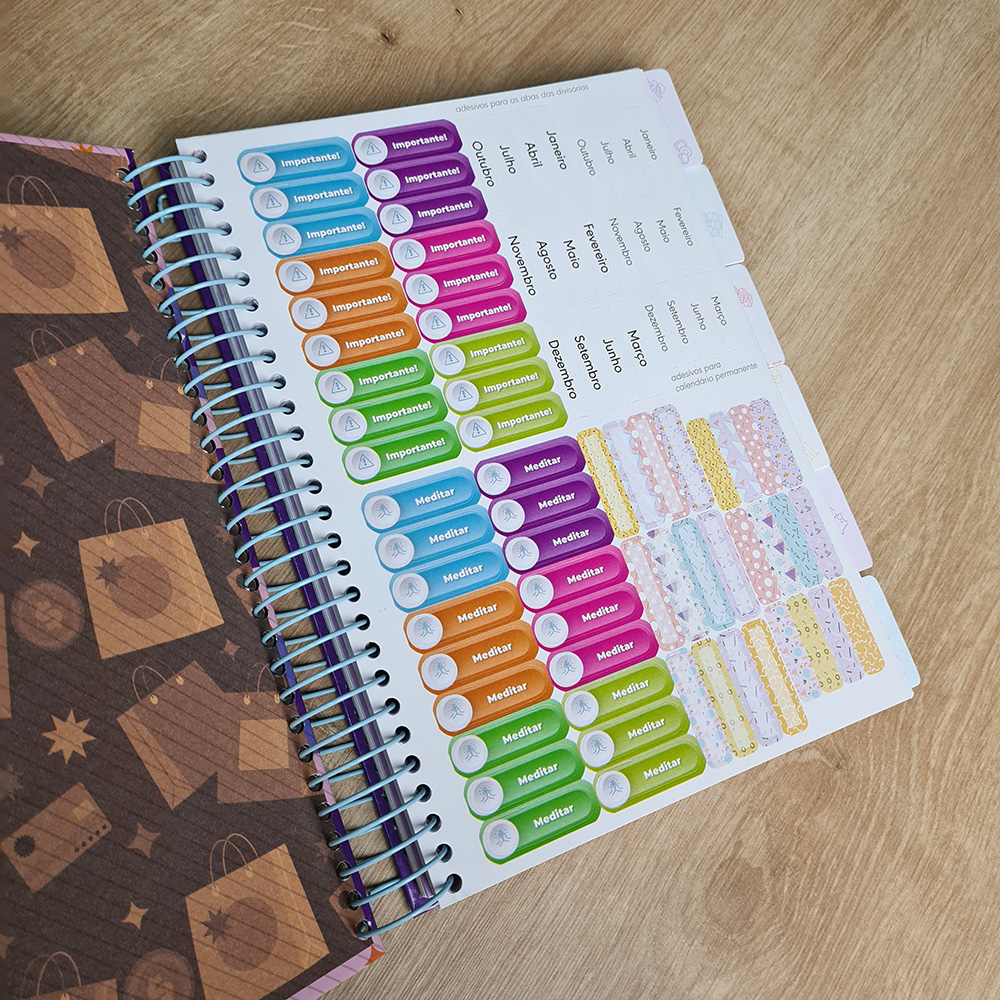 adesivos para as abas das divisórias
Importante! Importante!
Importante! Importante!
Importante! Importante!
Importante! Importante!
Importante! Importante!
Importante! Importante!
Importante! Importante!
Importante! Importante!
Importante! Importante!
Janeiro Fevereiro Março
Abril Maio Junho
Julho Agosto Setembro
Outubro Novembro Dezembro
Janeiro Fevereiro Março
Abril Maio Junho
Julho Agosto Setembro
Outubro Novembro Dezembro
adesivos para
calendário permanente
Meditar Meditar
Meditar Meditar
Meditar Meditar
Meditar Meditar
Meditar Meditar
Meditar Meditar
Meditar Meditar
Meditar Meditar
Meditar Meditar